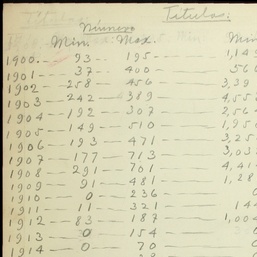 Titulos:
Número
Min. Max. Min
1900 --- 93 --- 195 --- 1,14
1901 --- 37 --- 400 --- 56
1902 --- 258 --- 456 --- 3,39
1903 --- 242 --- 389 --- 4,55
1904 --- 192 --- 307 --- 2,56
1905 --- 149 --- 510 --- 1,95
1906 --- 193 --- 471 --- 3,25
1907 --- 177 --- 713 --- 3,03
1908 --- 291 --- 701 --- 4,41
1909 --- 91 --- 481 --- 1,28
1910 --- 0 --- 236
1911 --- 11 --- 321 --- 14
1912 --- 83 --- 187 --- 1,00
1913 --- 0 --- 154
1914 --- 0 --- 70